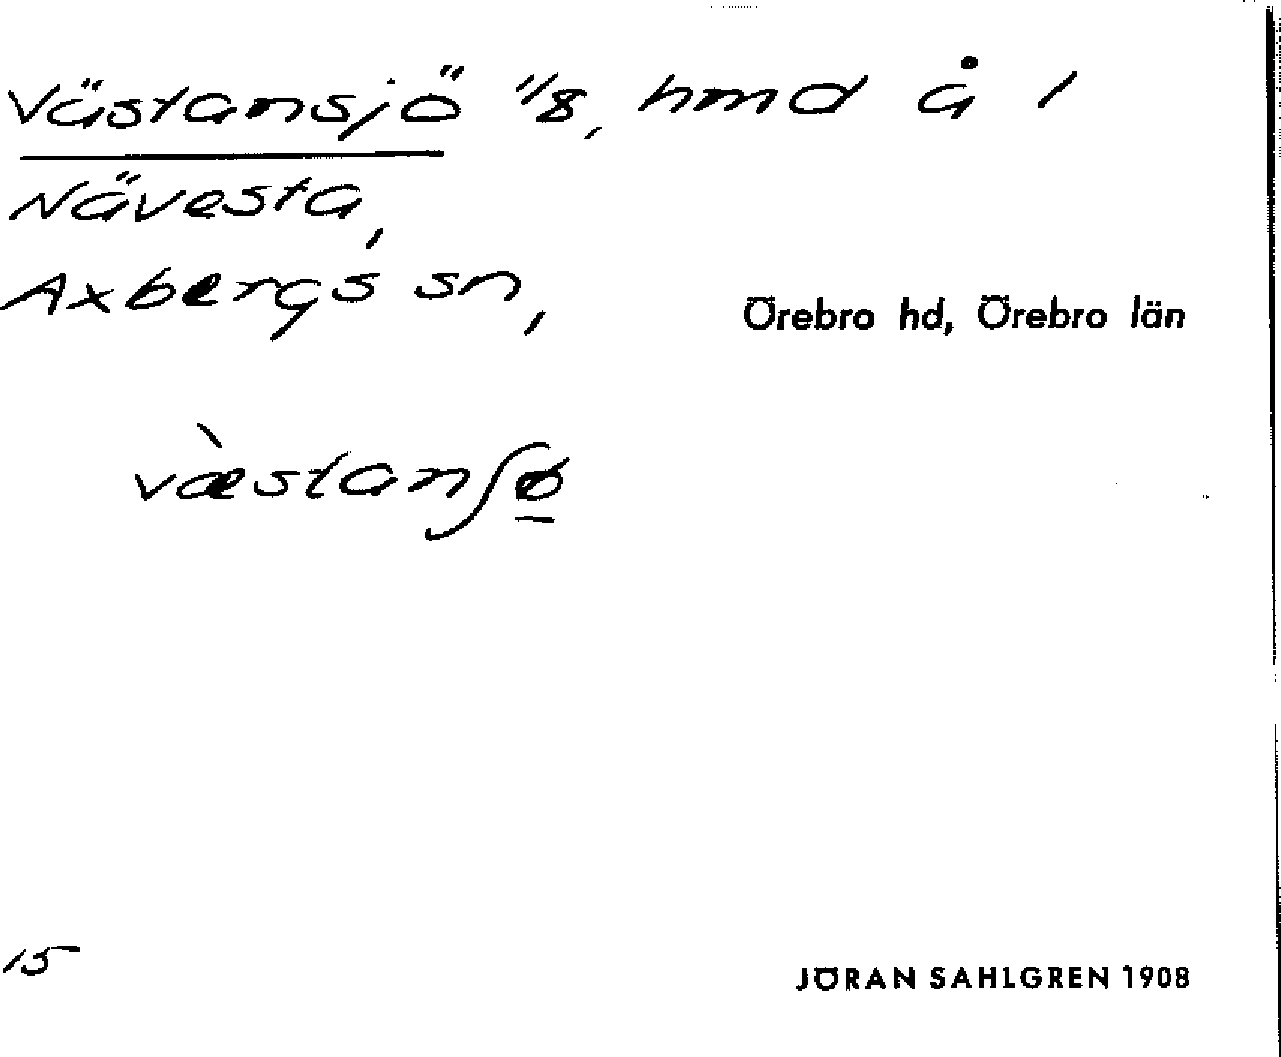 Västansjö 1/8, hmd å 1
Nävesta,
Axbergs sn, Örebro hd, Örebro län
væ̀stanʃø̠
15
JÖRAN SAHLGREN 1908